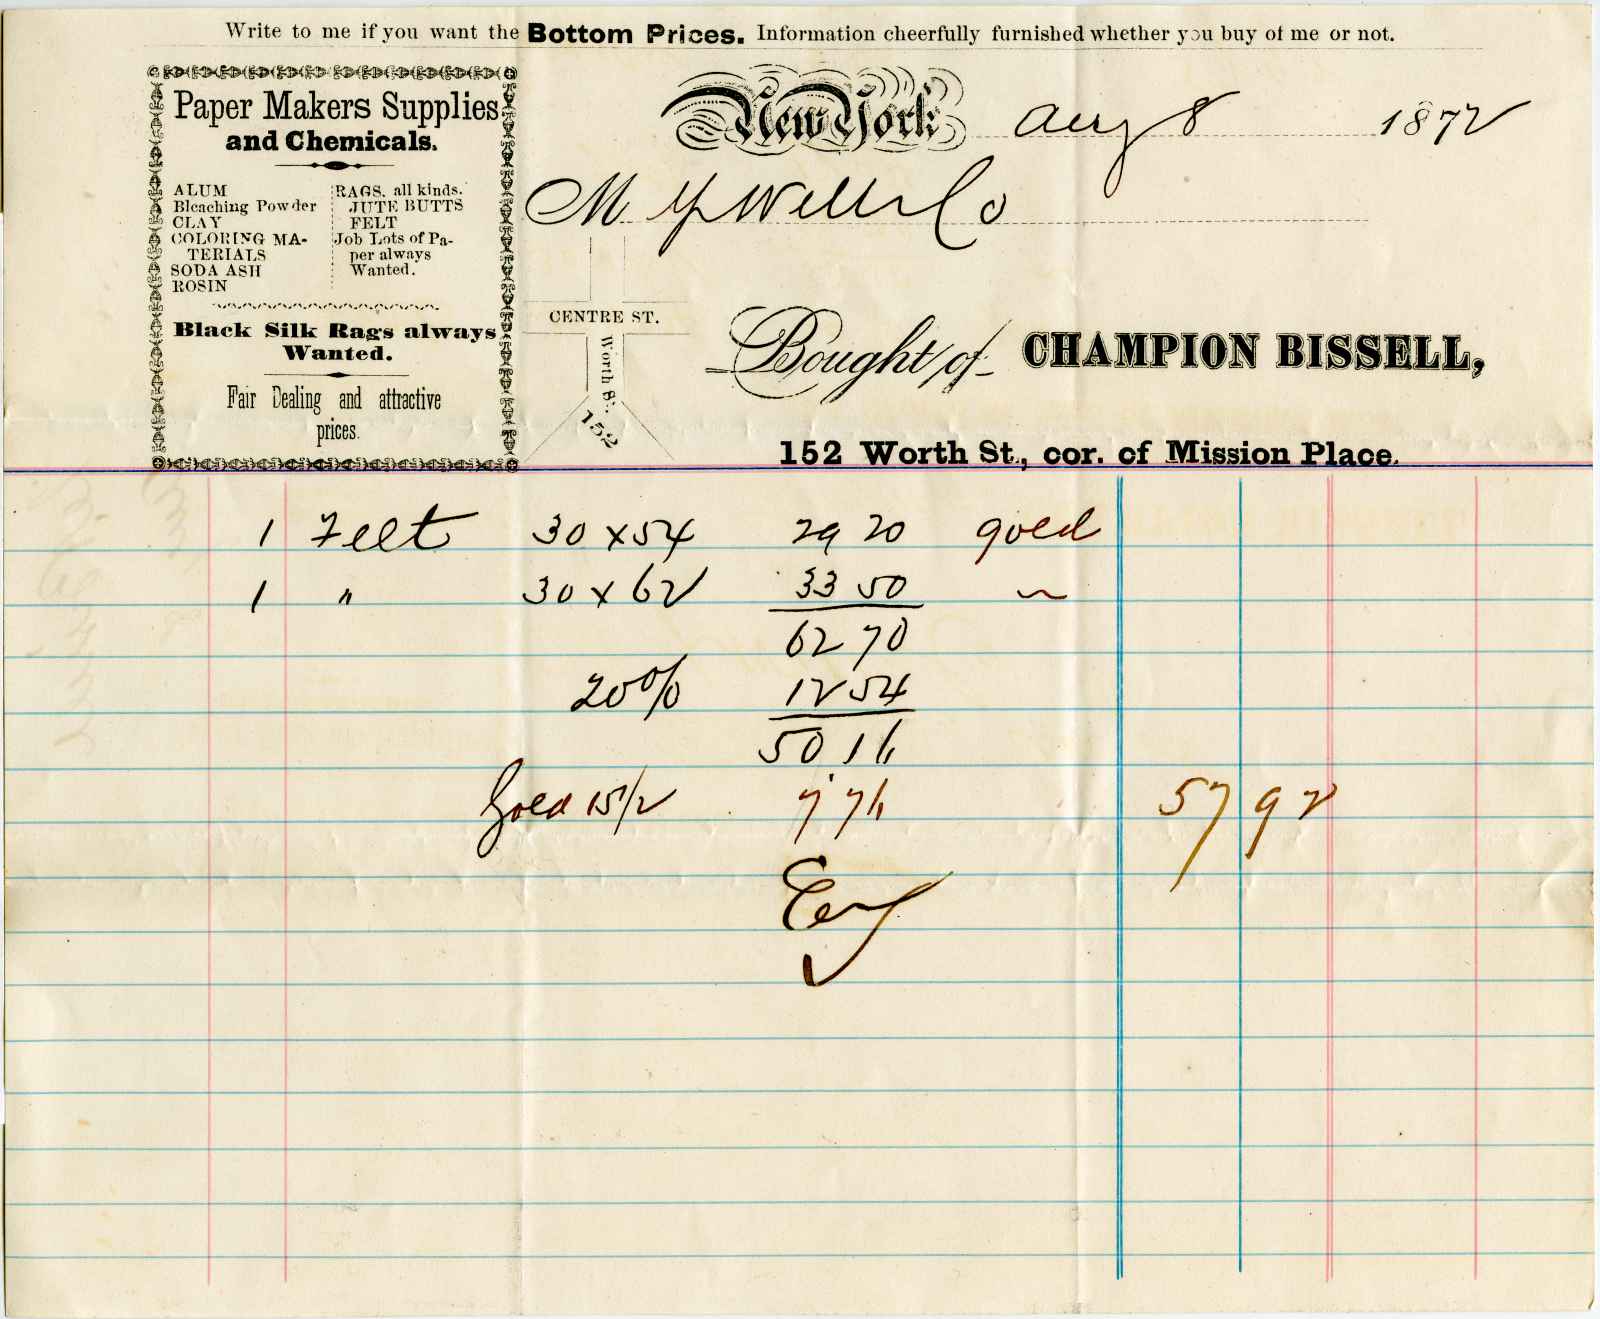 Write to me if you want the Bottom Prices. Information cheerfully furnished whether you buy of me or not.
Paper Makers Supplies
and Chemicals.
ALUM
Bleaching Powder
CLAY
COLORING MA-
TERIALS
SODA ASH
ROSIN
RAGS, all kinds.
JUTE BUTTS
FELT
Job Lots of Pa-
per always
Wanted.
Black Silk Rags always
Wanted.
Fair Dealing and attractive
prices.
New York Aug 8 1872
M Y Weller Co
CENTRE ST.
Worth St.
152
Bought of CHAMPION BISSELL,
152 Worth St., cor. of Mission Place.
1 Felt 30 x 54 29 20 gold
1 " 30 x 62 33 50 "
62 70
20% 12 54
50 16
Gold 15 1/2 7 76 57 92